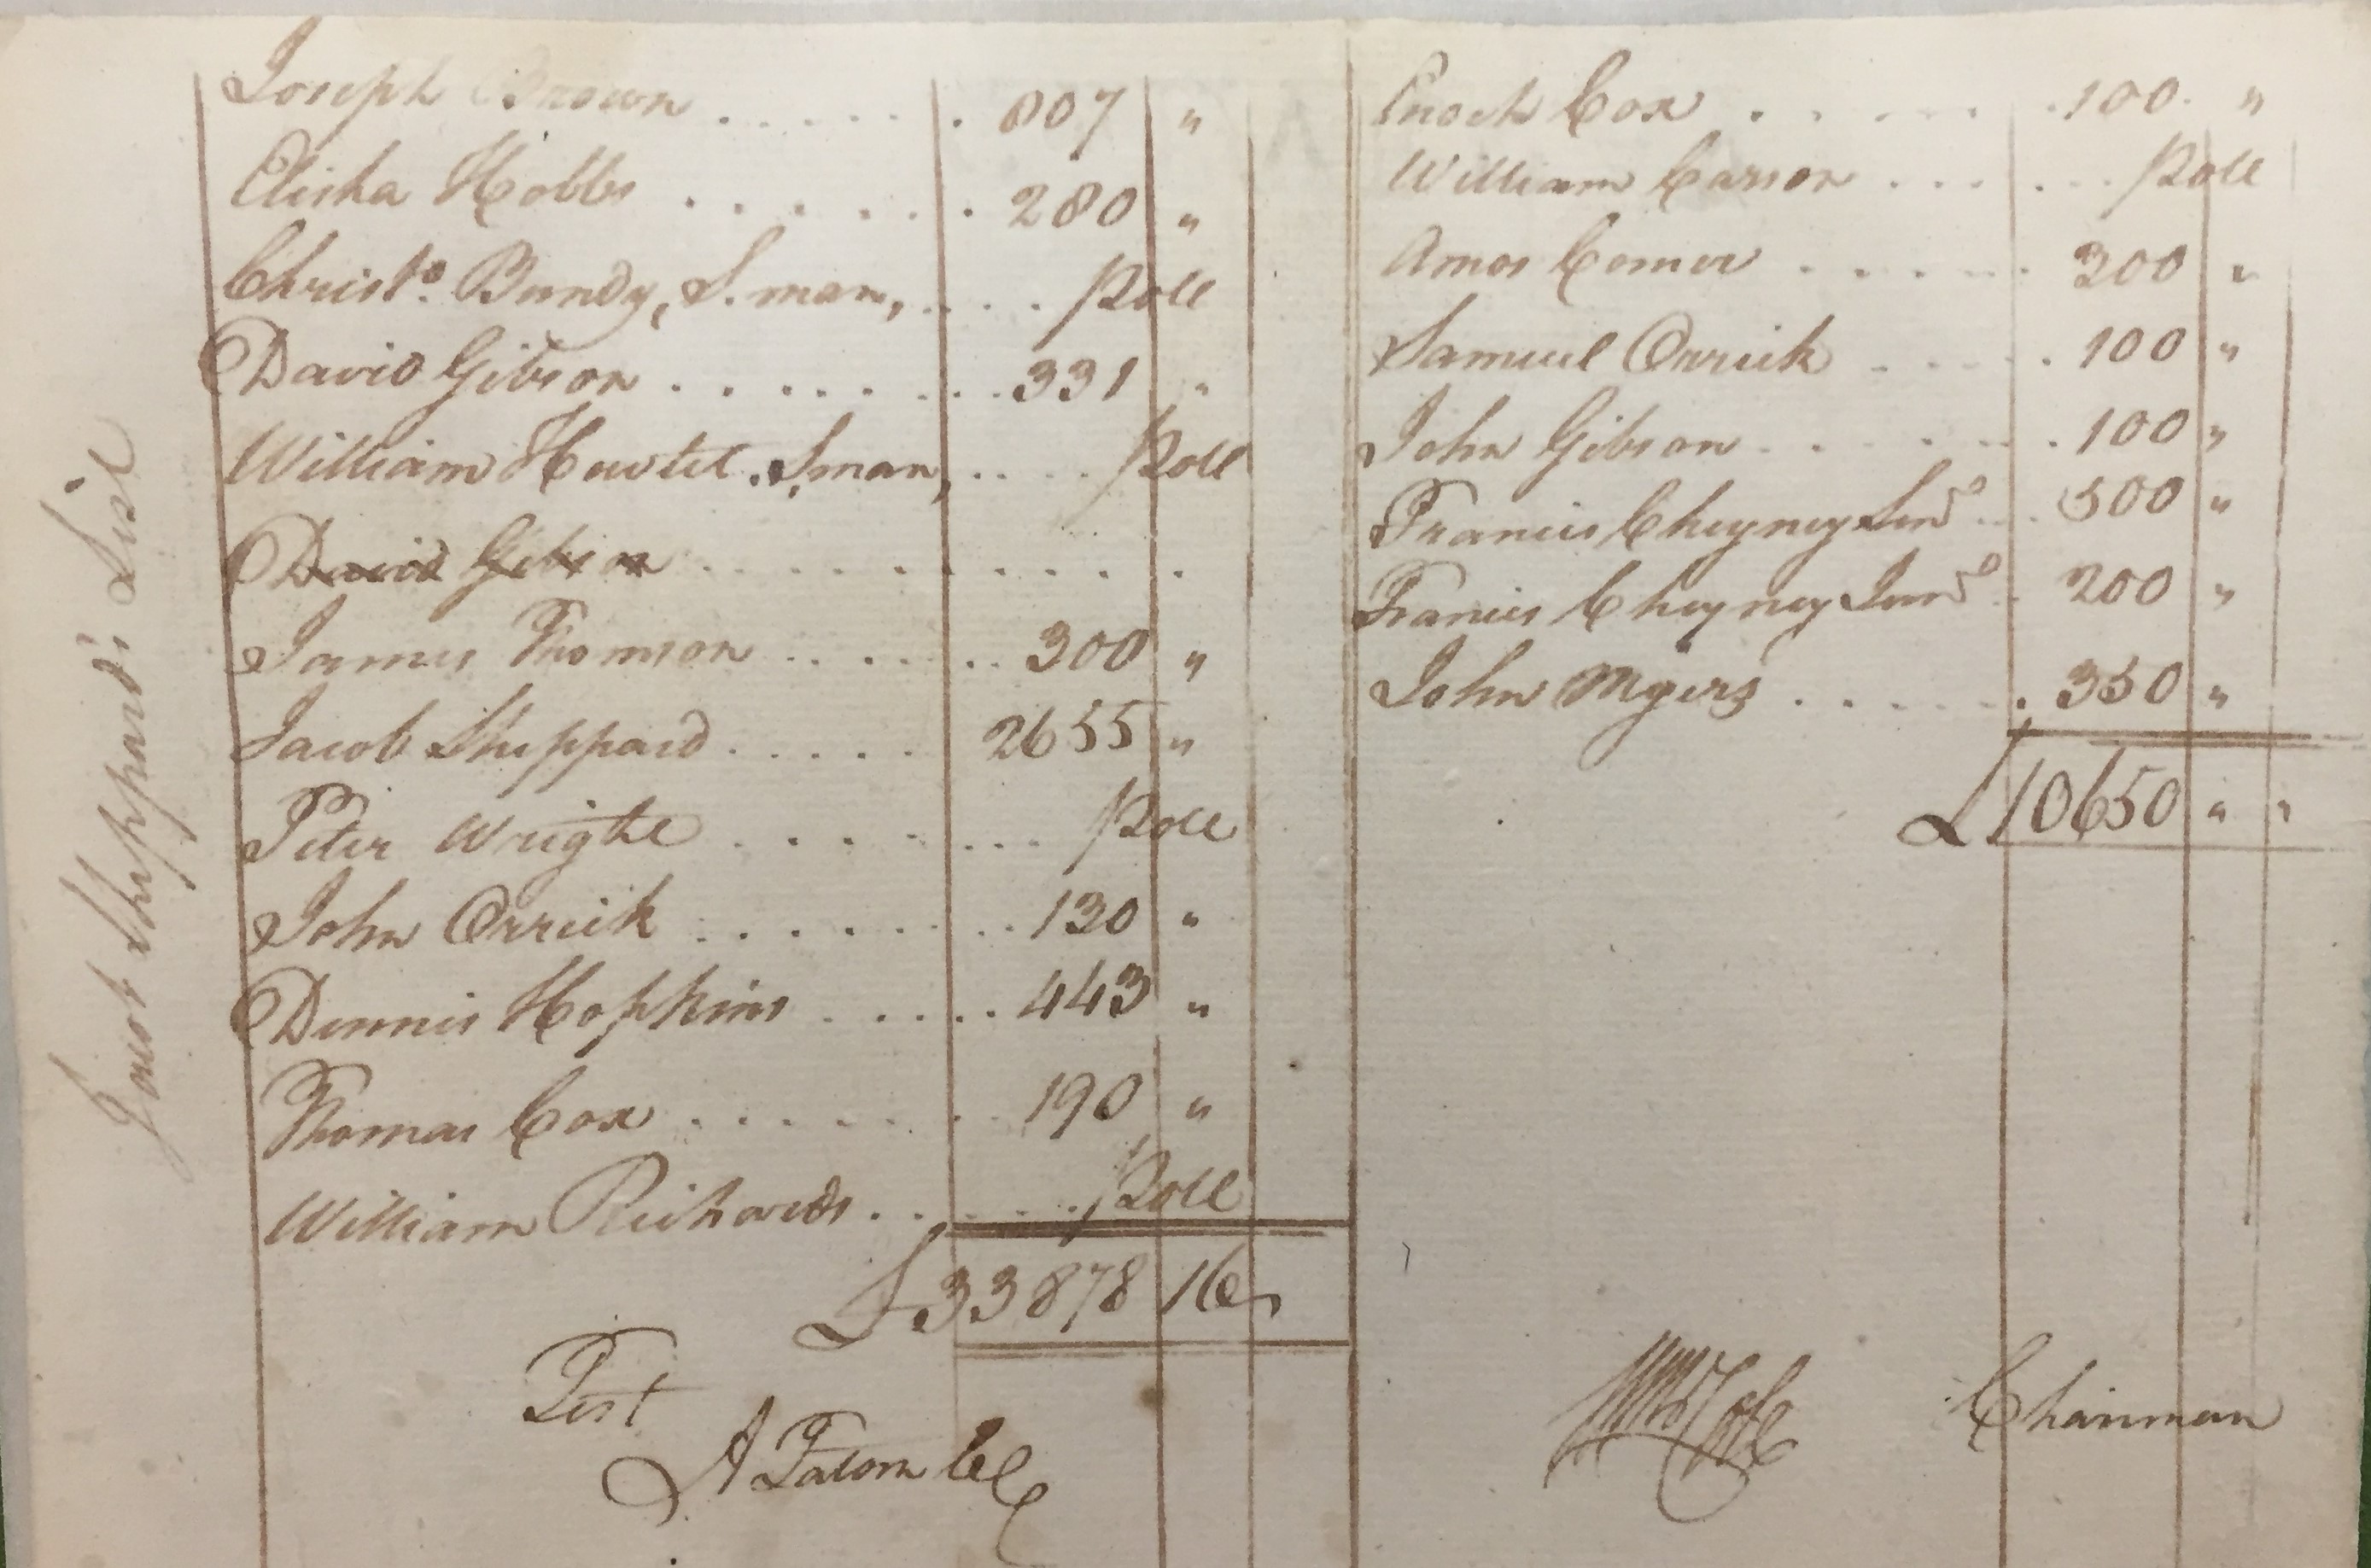 Jacob Sheppard's List
Joseph Brown . . . . . . 807 "
Elisha Hobbs . . . . . . 280 "
Christo. Bundy, S. man, . . . . Poll
David Gibson . . . . . . . . 331 "
William Hewlet. S. man, . . . . Poll
David Gibson . . . . . . . . . .
James Thomson . . . . . . 300 "
Jacob Sheppard . . . . . 2655 "
Peter Wright . . . . . . . Poll
John Orrick . . . . . . . . 130 "
Dennis Hopkins . . . . . 443 "
Thomas Cox . . . . . . . 190 "
William Richards . . . . . . Poll
£ 33878 16
Test
A Tatom Cl
Enoch Cox . . . . . . 100 "
William Carson . . . . . . Poll
Amos Comer . . . . . 300 "
Samuel Orrick . . . . . 100 "
John Gibson . . . . . . 100 "
Francis Cheyney Senr . . . 500 "
Francis Cheyney Junr . . 200 "
John Myers . . . . . . 350 "
£ 10650 " "
Chairman